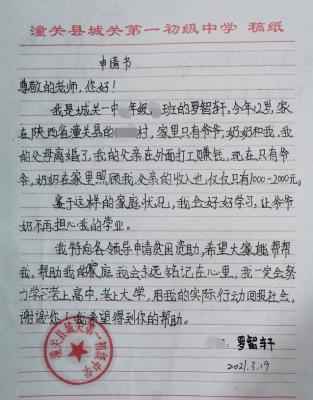 潼关县城关第一初级中学 稿纸
申请书
尊敬的老师，您好！
我是城关一中 年级 班的罗智轩，今年12岁，家
在陕西省潼关县的 村，家里只有爷爷，奶奶和我，我
的父母离婚了，我的父亲在外面打工赚钱，现在只有爷
爷，奶奶在家里照顾我，父亲的收入也仅仅只有1000-2000元。
鉴于这样的家庭状况，我会好好学习，让爷
奶不再担心我的学业。
我特向各领导申请贫困资助，希望大家能帮帮
我，帮助我的家庭，我会永远铭记在心里，我一定会努
力学习考上高中，考上大学，用我的实际行动回报社会，
谢谢你！我希望得到你的帮助。
：罗智轩
2021.3.19
潼关县城关第一初级中学